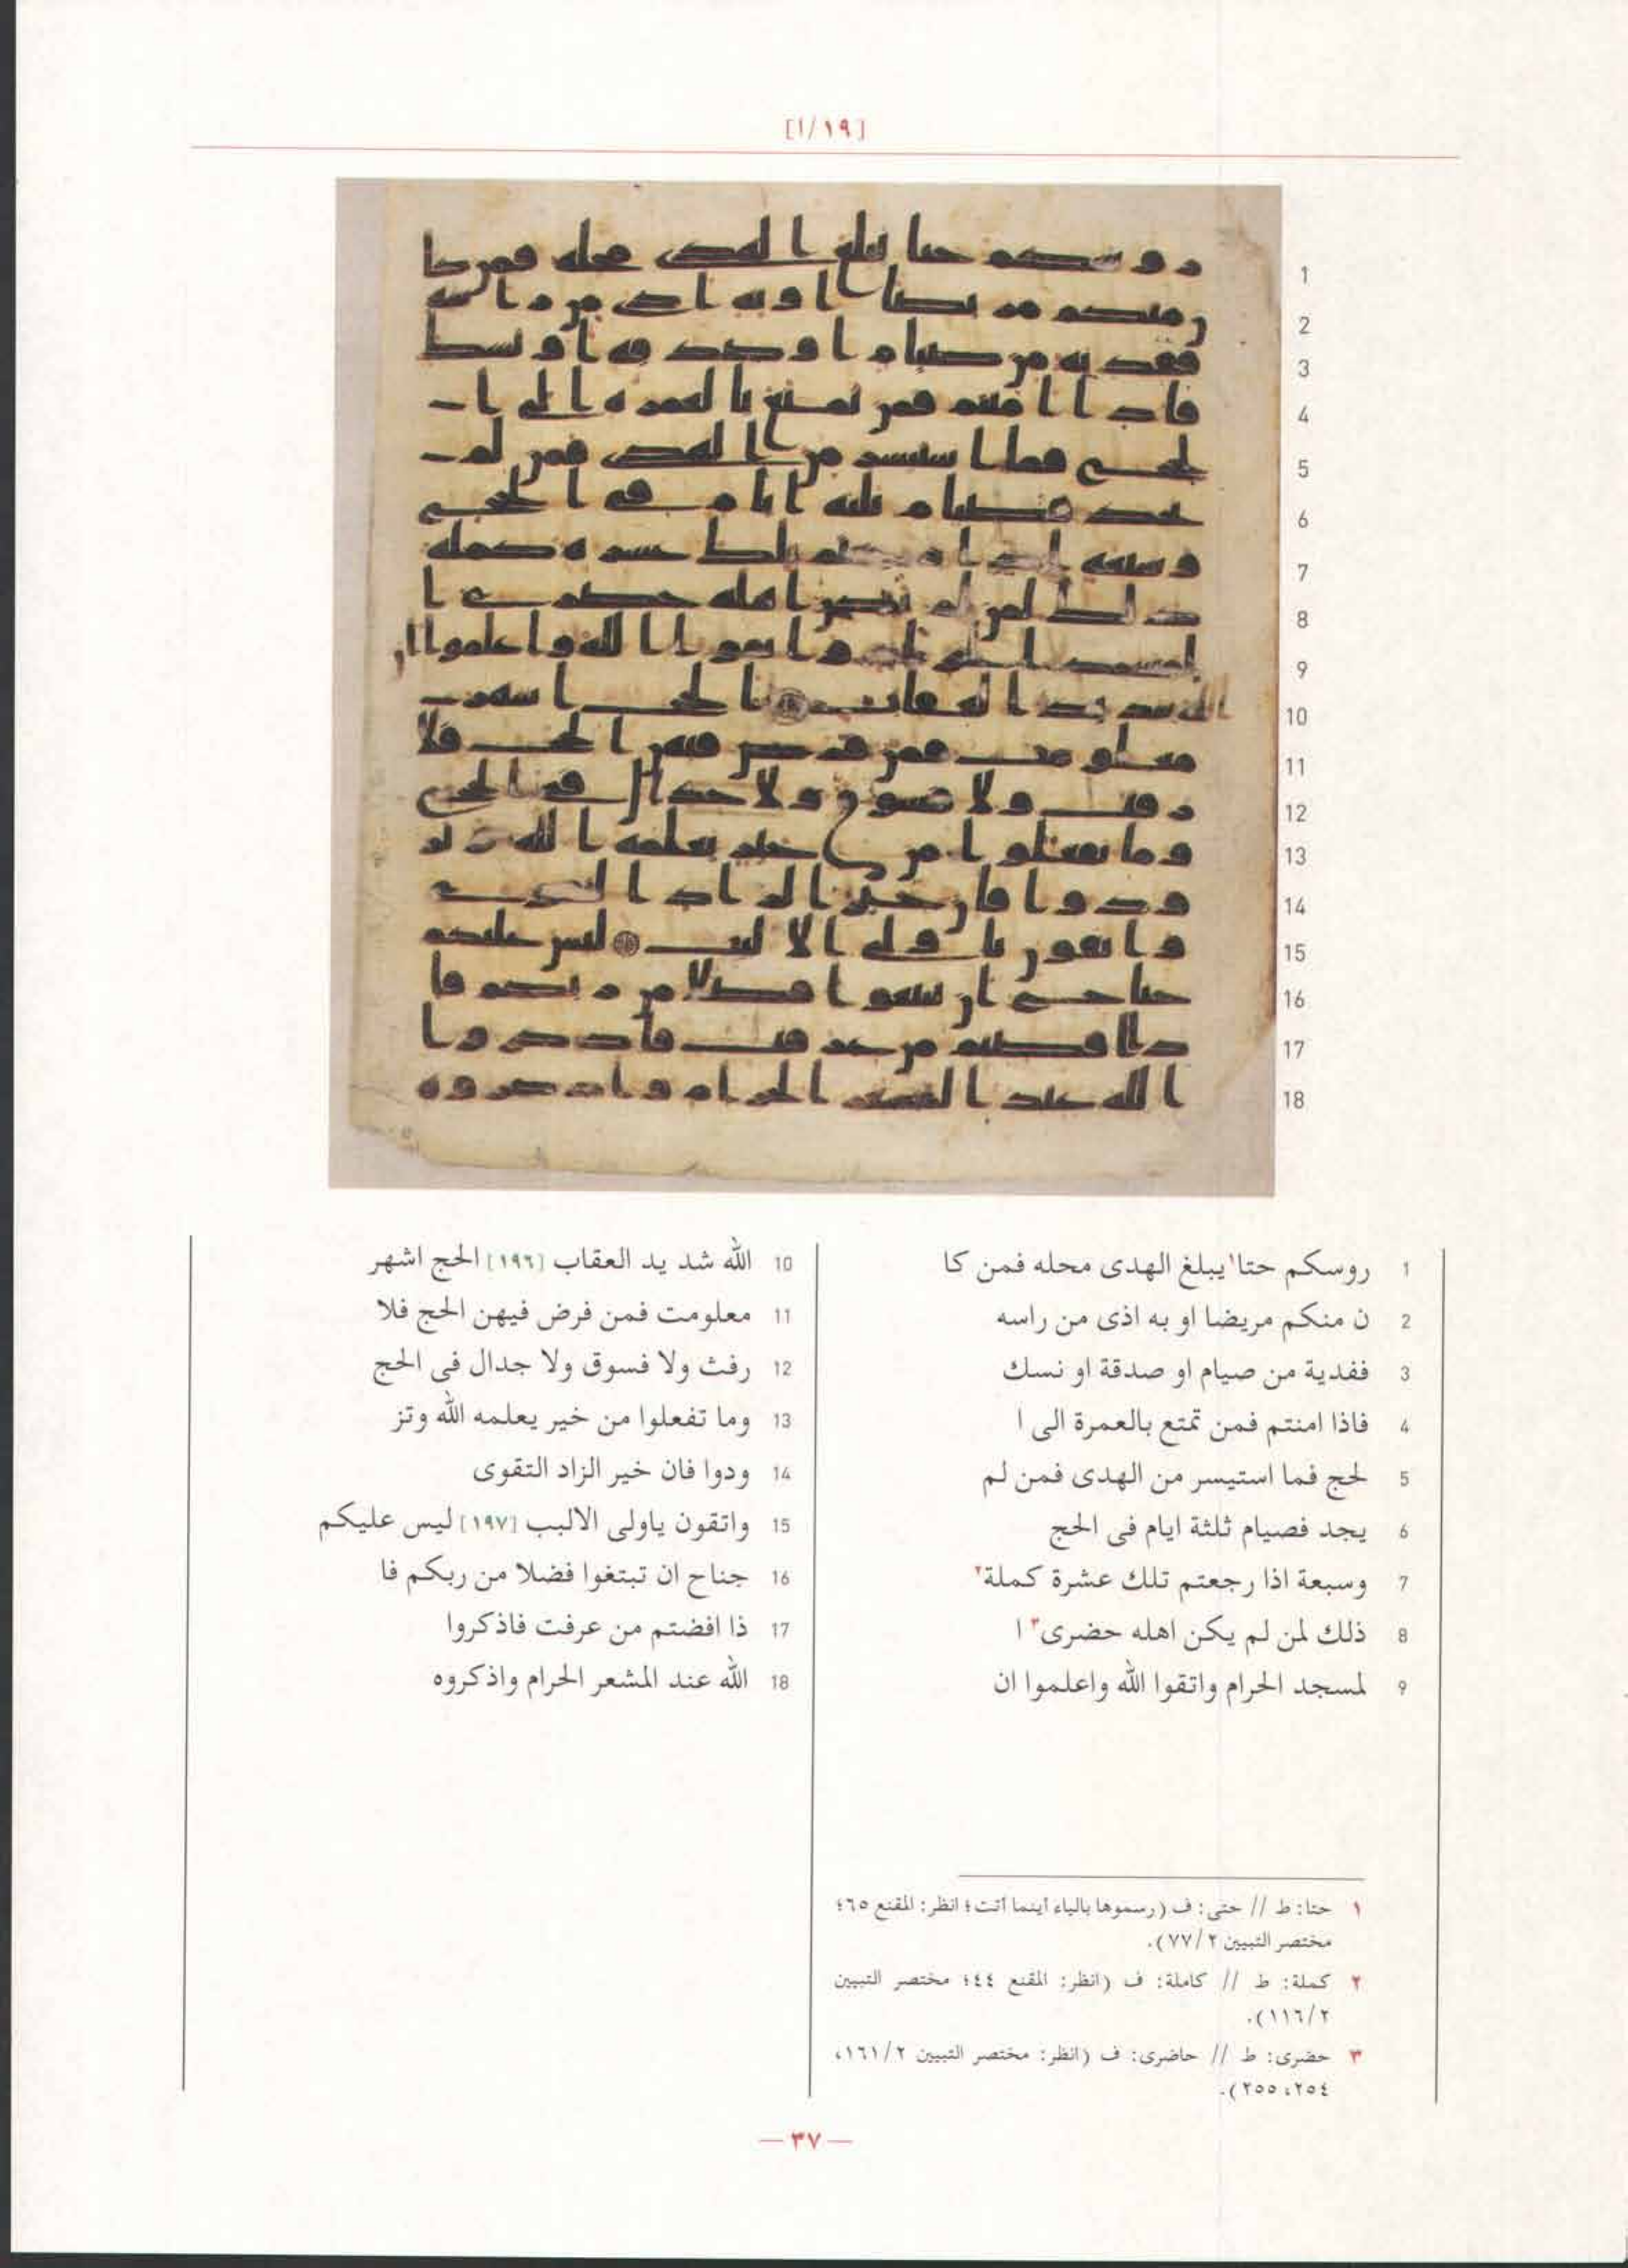 [١٩/ا]
1 روسكم حتا١ يبلغ الهدى محله فمن كا
2 ن منكم مريضا او به اذى من راسه
3 ففدية من صيام او صدقة او نسك
4 فاذا امنتم فمن تمتع بالعمرة الى ا
5 لحج فما استيسر من الهدى فمن لم
6 يجد فصيام ثلثة ايام فى الحج
7 وسبعة اذا رجعتم تلك عشرة كملة٢
8 ذلك لمن لم يكن اهله حضرى٣ ا
9 لمسجد الحرام واتقوا الله واعلموا ان
10 الله شد يد العقاب [١٩٦] الحج اشهر
11 معلومت فمن فرض فيهن الحج فلا
12 رفث ولا فسوق ولا جدال فى الحج
13 وما تفعلوا من خير يعلمه الله وتز
14 ودوا فان خير الزاد التقوى
15 واتقون ياولى الالبب [١٩٧] ليس عليكم
16 جناح ان تبتغوا فضلا من ربكم فا
17 ذا افضتم من عرفت فاذكروا
18 الله عند المشعر الحرام واذكروه
١ حتا: ط // حتى: ف (رسموها بالياء أينما أتت؛ انظر: المقنع ٦٥؛
مختصر التبيين ٧٧/٢).
٢ كملة: ط // كاملة: ف (انظر: المقنع ٤٤؛ مختصر التبيين
١١٦/٢).
٣ حضرى: ط // حاضرى: ف (انظر: مختصر التبيين ١٦١/٢،
٢٥٤، ٢٥٥).
— ٣٧ —